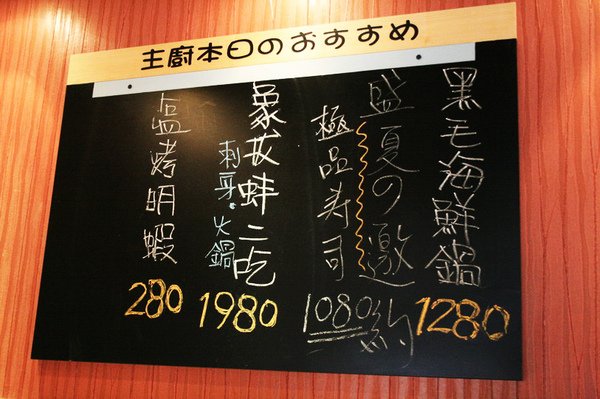 主廚本日のおすすめ
黑毛海鮮鍋
1280
盛夏の邀約
極品寿司
1080
象拔蚌二吃
刺身·火鍋
1980
盐烤明蝦
280